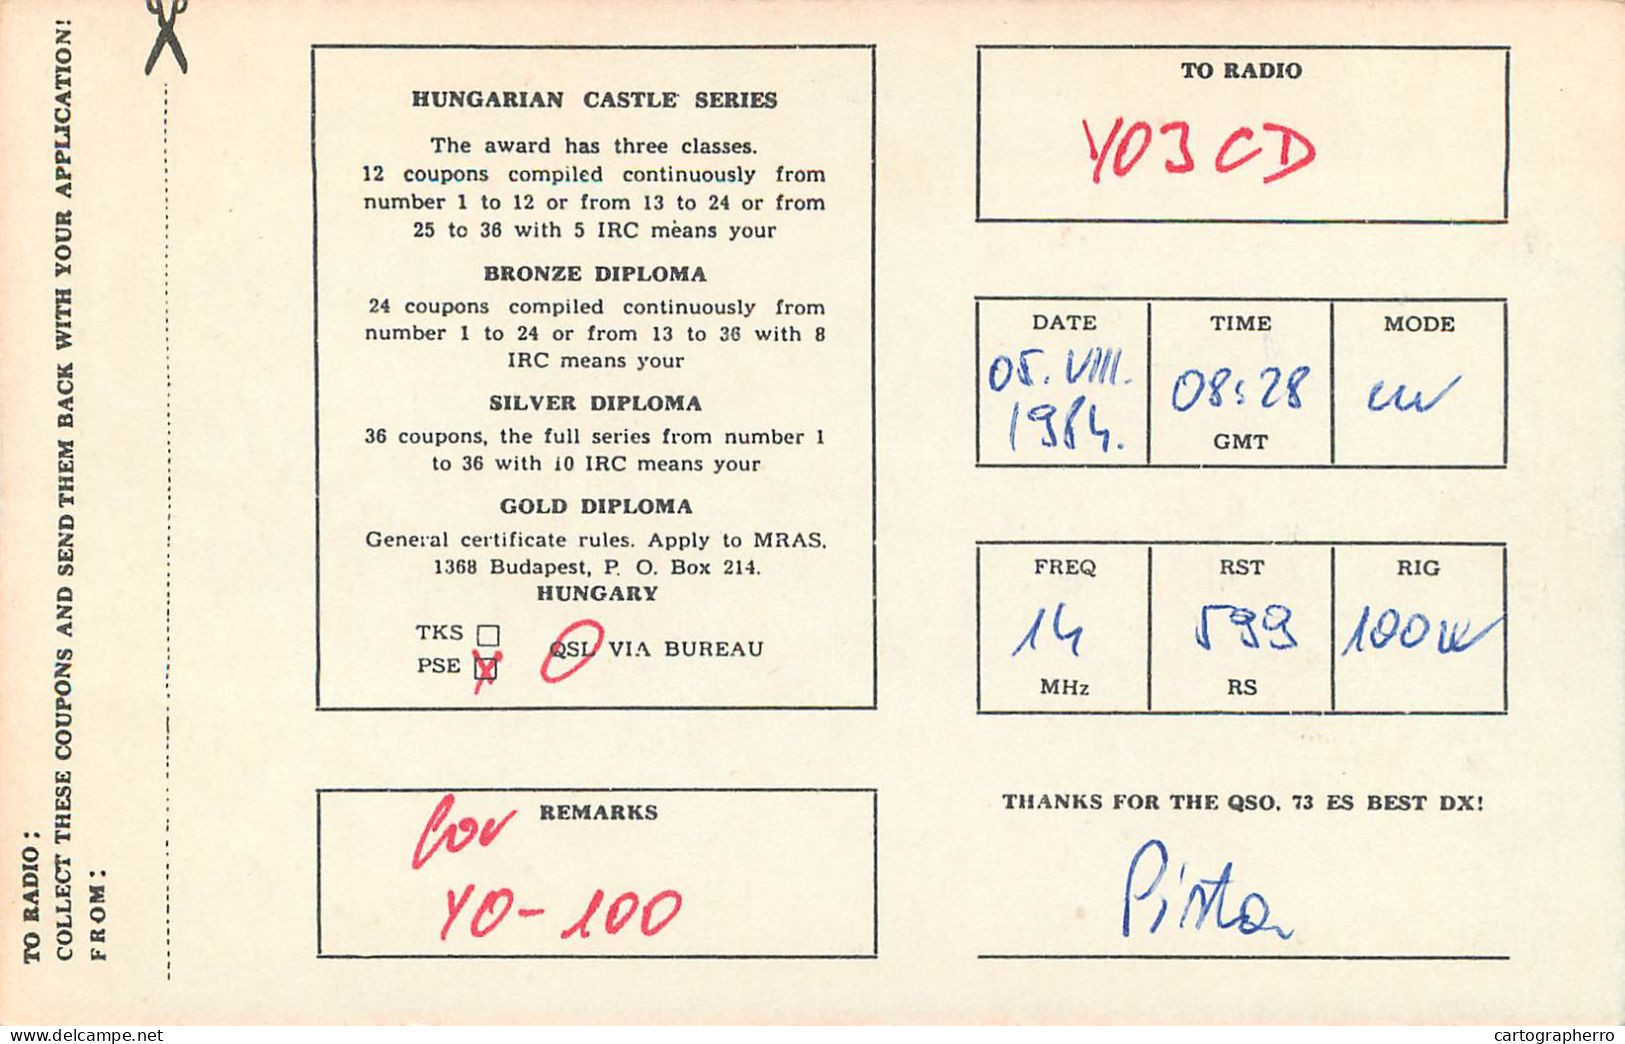 TO RADIO:
COLLECT THESE COUPONS AND SEND THEM BACK WITH YOUR APPLICATION!
FROM:
HUNGARIAN CASTLE SERIES
The award has three classes.
12 coupons compiled continuously from
number 1 to 12 or from 13 to 24 or from
25 to 36 with 5 IRC means your
BRONZE DIPLOMA
24 coupons compiled continuously from
number 1 to 24 or from 13 to 36 with 8
IRC means your
SILVER DIPLOMA
36 coupons, the full series from number 1
to 36 with 10 IRC means your
GOLD DIPLOMA
General certificate rules. Apply to MRAS.
1368 Budapest, P. O. Box 214.
HUNGARY
TKS
PSE
QSL VIA BUREAU
REMARKS
for
YO-100
TO RADIO
YO3CD
DATE TIME MODE
05. VIII. 08:28 cw
1984.
GMT
FREQ RST RIG
14 599 100W
MHz RS
THANKS FOR THE QSO, 73 ES BEST DX!
Pista
www.delcampe.net
cartographerro